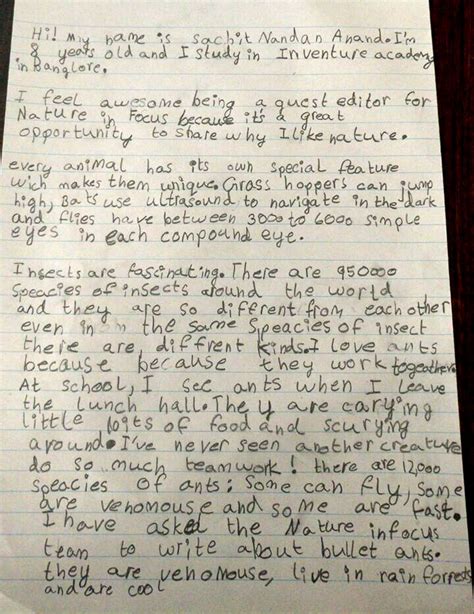 Hi! My name is sachit Nandan Anand. I'm
8 years old and I study in Inventure academy
in Banglore.
I feel awesome being a guest editor for
Nature in Focus because it's a great
opportunity to share why I like nature.
every animal has its own special feature
wich makes them unique. Grass hoppers can jump
high, Bats use ultrasound to navigate in the dark
and flies have between 3000 to 6000 simple
eyes in each compound eye.
Insects are fascinating. There are 950000
Speacies of insects around the world
and they are so different from each other
even in the same speacies of insect
there are diffrent kinds. I love ants
because because they work togeather.
At school, I see ants when I leave
the lunch hall. They are carying
little bits of food and scurying
around. I've never seen another creature
do so much teamwork! there are 12,000
speacies of ants: Some can fly, some
are venomouse and some are fast.
I have asked the Nature infocus
team to write about bullet ants.
they are venomouse, live in rain forrests
and are cool